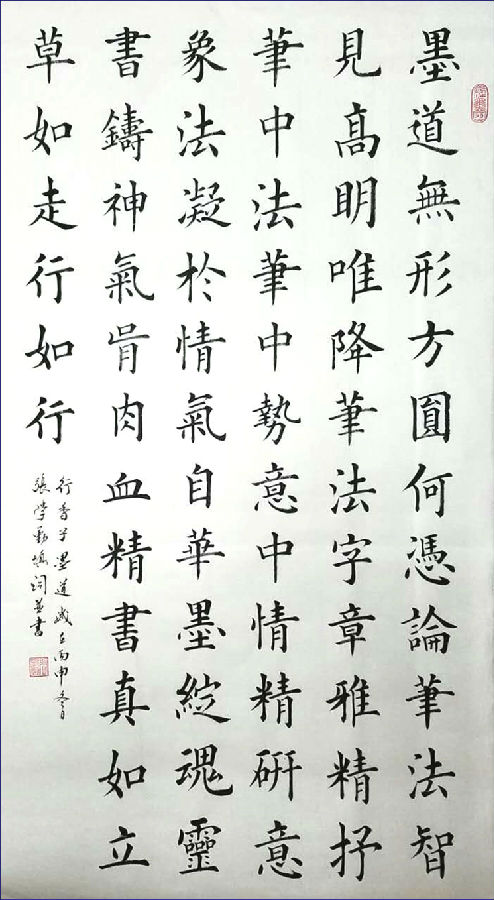 墨道無形方圓何憑論筆法智
見高明唯降筆法字章雅精抒
筆中法筆中勢意中情精研意
象法凝於情氣自華墨綻魂靈
書鑄神氣骨肉血精書真如立
草如走行如行
行香子墨道歲在丙申冬月
張學勇填詞並書